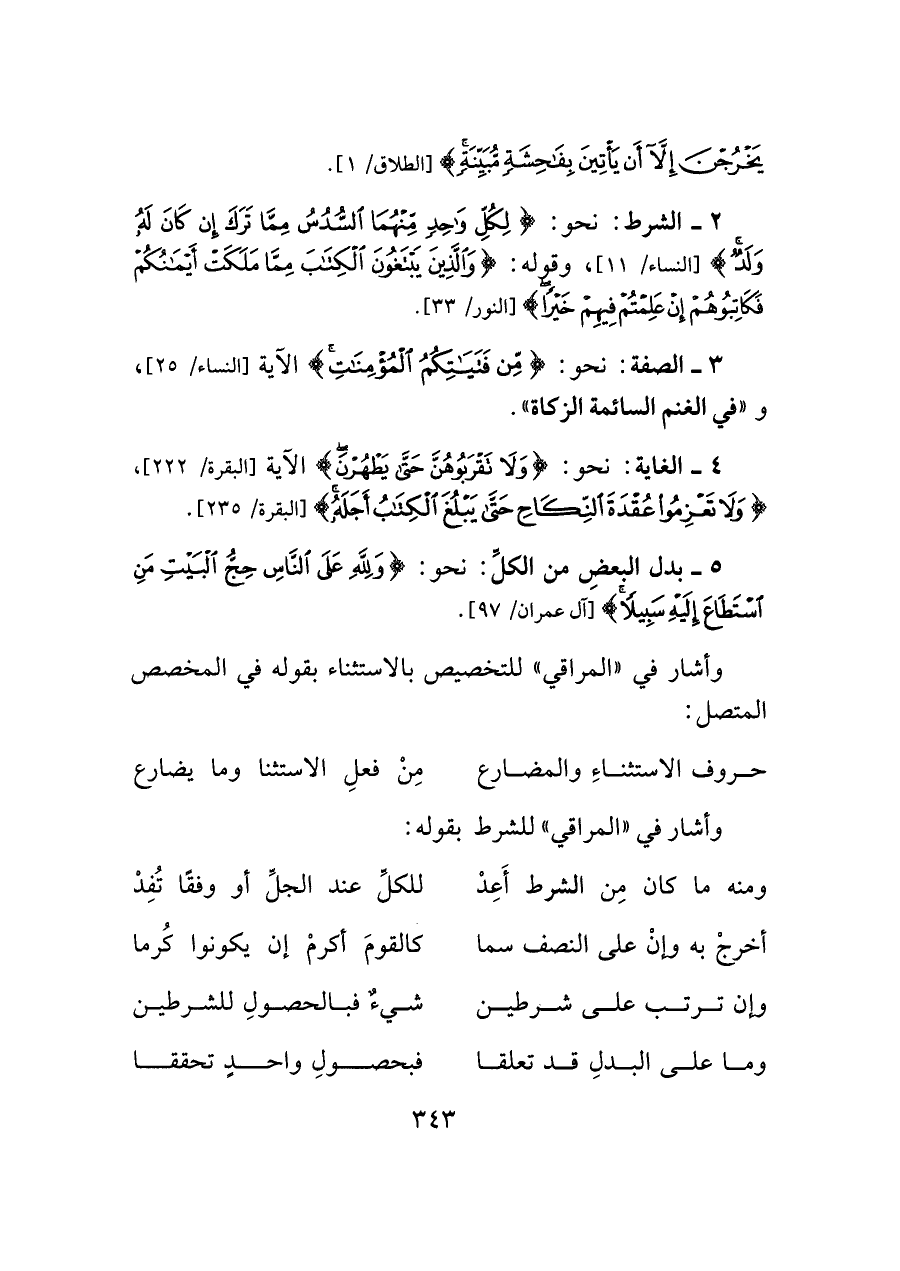 يَخْرُجْنَ إِلَّآ أَن يَأْتِينَ بِفَٰحِشَةٍ مُّبَيِّنَةٍ ۚ﴾ [الطلاق/ ١].
٢ ـ الشرط: نحو: ﴿لِكُلِّ وَٰحِدٍ مِّنْهُمَا ٱلسُّدُسُ مِمَّا تَرَكَ إِن كَانَ لَهُۥ
وَلَدٌ ۚ﴾ [النساء/ ١١]، وقوله: ﴿وَٱلَّذِينَ يَبْتَغُونَ ٱلْكِتَٰبَ مِمَّا مَلَكَتْ أَيْمَٰنُكُمْ
فَكَاتِبُوهُمْ إِنْ عَلِمْتُمْ فِيهِمْ خَيْرًا ۖ﴾ [النور/ ٣٣].
٣ ـ الصفة: نحو: ﴿مِّن فَتَيَٰتِكُمُ ٱلْمُؤْمِنَٰتِ ۚ﴾ الآية [النساء/ ٢٥]،
و «في الغنم السائمة الزكاة».
٤ ـ الغاية: نحو: ﴿وَلَا تَقْرَبُوهُنَّ حَتَّىٰ يَطْهُرْنَ ۖ﴾ الآية [البقرة/ ٢٢٢]،
﴿وَلَا تَعْزِمُوا۟ عُقْدَةَ ٱلنِّكَاحِ حَتَّىٰ يَبْلُغَ ٱلْكِتَٰبُ أَجَلَهُۥ ۚ﴾ [البقرة/ ٢٣٥].
٥ ـ بدل البعضِ من الكلِّ: نحو: ﴿وَلِلَّهِ عَلَى ٱلنَّاسِ حِجُّ ٱلْبَيْتِ مَنِ
ٱسْتَطَاعَ إِلَيْهِ سَبِيلًا ۚ﴾ [آل عمران/ ٩٧].
وأشار في «المراقي» للتخصيص بالاستثناء بقوله في المخصص
المتصل:
حروف الاستثناءِ والمضارع مِنْ فعلِ الاستثنا وما يضارع
وأشار في «المراقي» للشرط بقوله:
ومنه ما كان مِن الشرط أَعِدْ للكلِّ عند الجلِّ أو وفقًا تُفِدْ
أخرجْ به وإنْ على النصف سما كالقومَ أكرمْ إن يكونوا كُرما
وإن ترتب على شرطين شيءٌ فبالحصولِ للشرطين
وما على البدلِ قد تعلقا فبحصولِ واحدٍ تحققا
٣٤٣